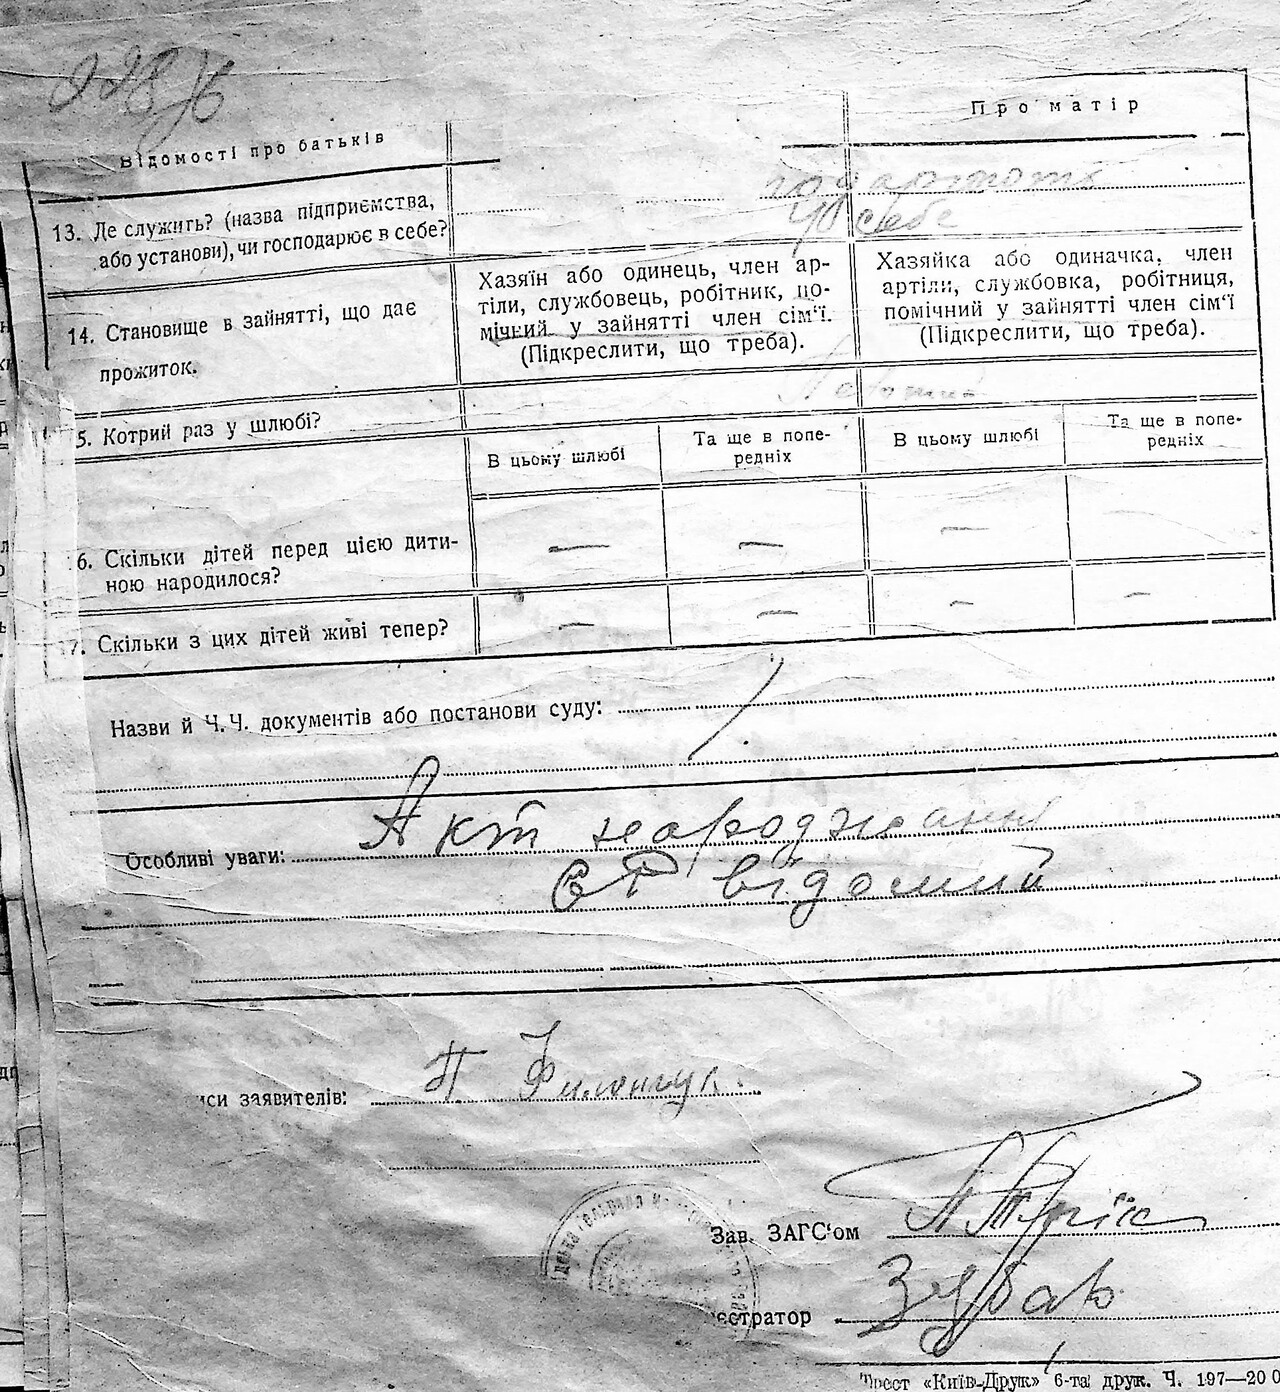 Відомості про батьків
Про матір
13. Де служить? (назва підприємства,
або установи), чи господарює в себе?
у себе
14. Становище в зайнятті, що дає
прожиток.
Хазяїн або одинець, член ар-
тіли, службовець, робітник, по-
мічний у зайнятті член сім'ї.
(Підкреслити, що треба).
Хазяйка або одиначка, член
артіли, службовка, робітниця,
помічний у зайнятті член сім'ї
(Підкреслити, що треба).
5. Котрий раз у шлюбі?
В цьому шлюбі
Та ще в попе-
редніх
В цьому шлюбі
Та ще в попе-
редніх
6. Скільки дітей перед цією дити-
ною народилося?
— — —
7. Скільки з цих дітей живі тепер?
— — — —
Назви й Ч.Ч. документів або постанови суду:
Особливі уваги: Акт народження
відомий
иси заявителів: П.
Зав. ЗАГС'ом
стратор Зубар
Трест «Київ-Друк» 6-та друк. Ч. 197—20 0